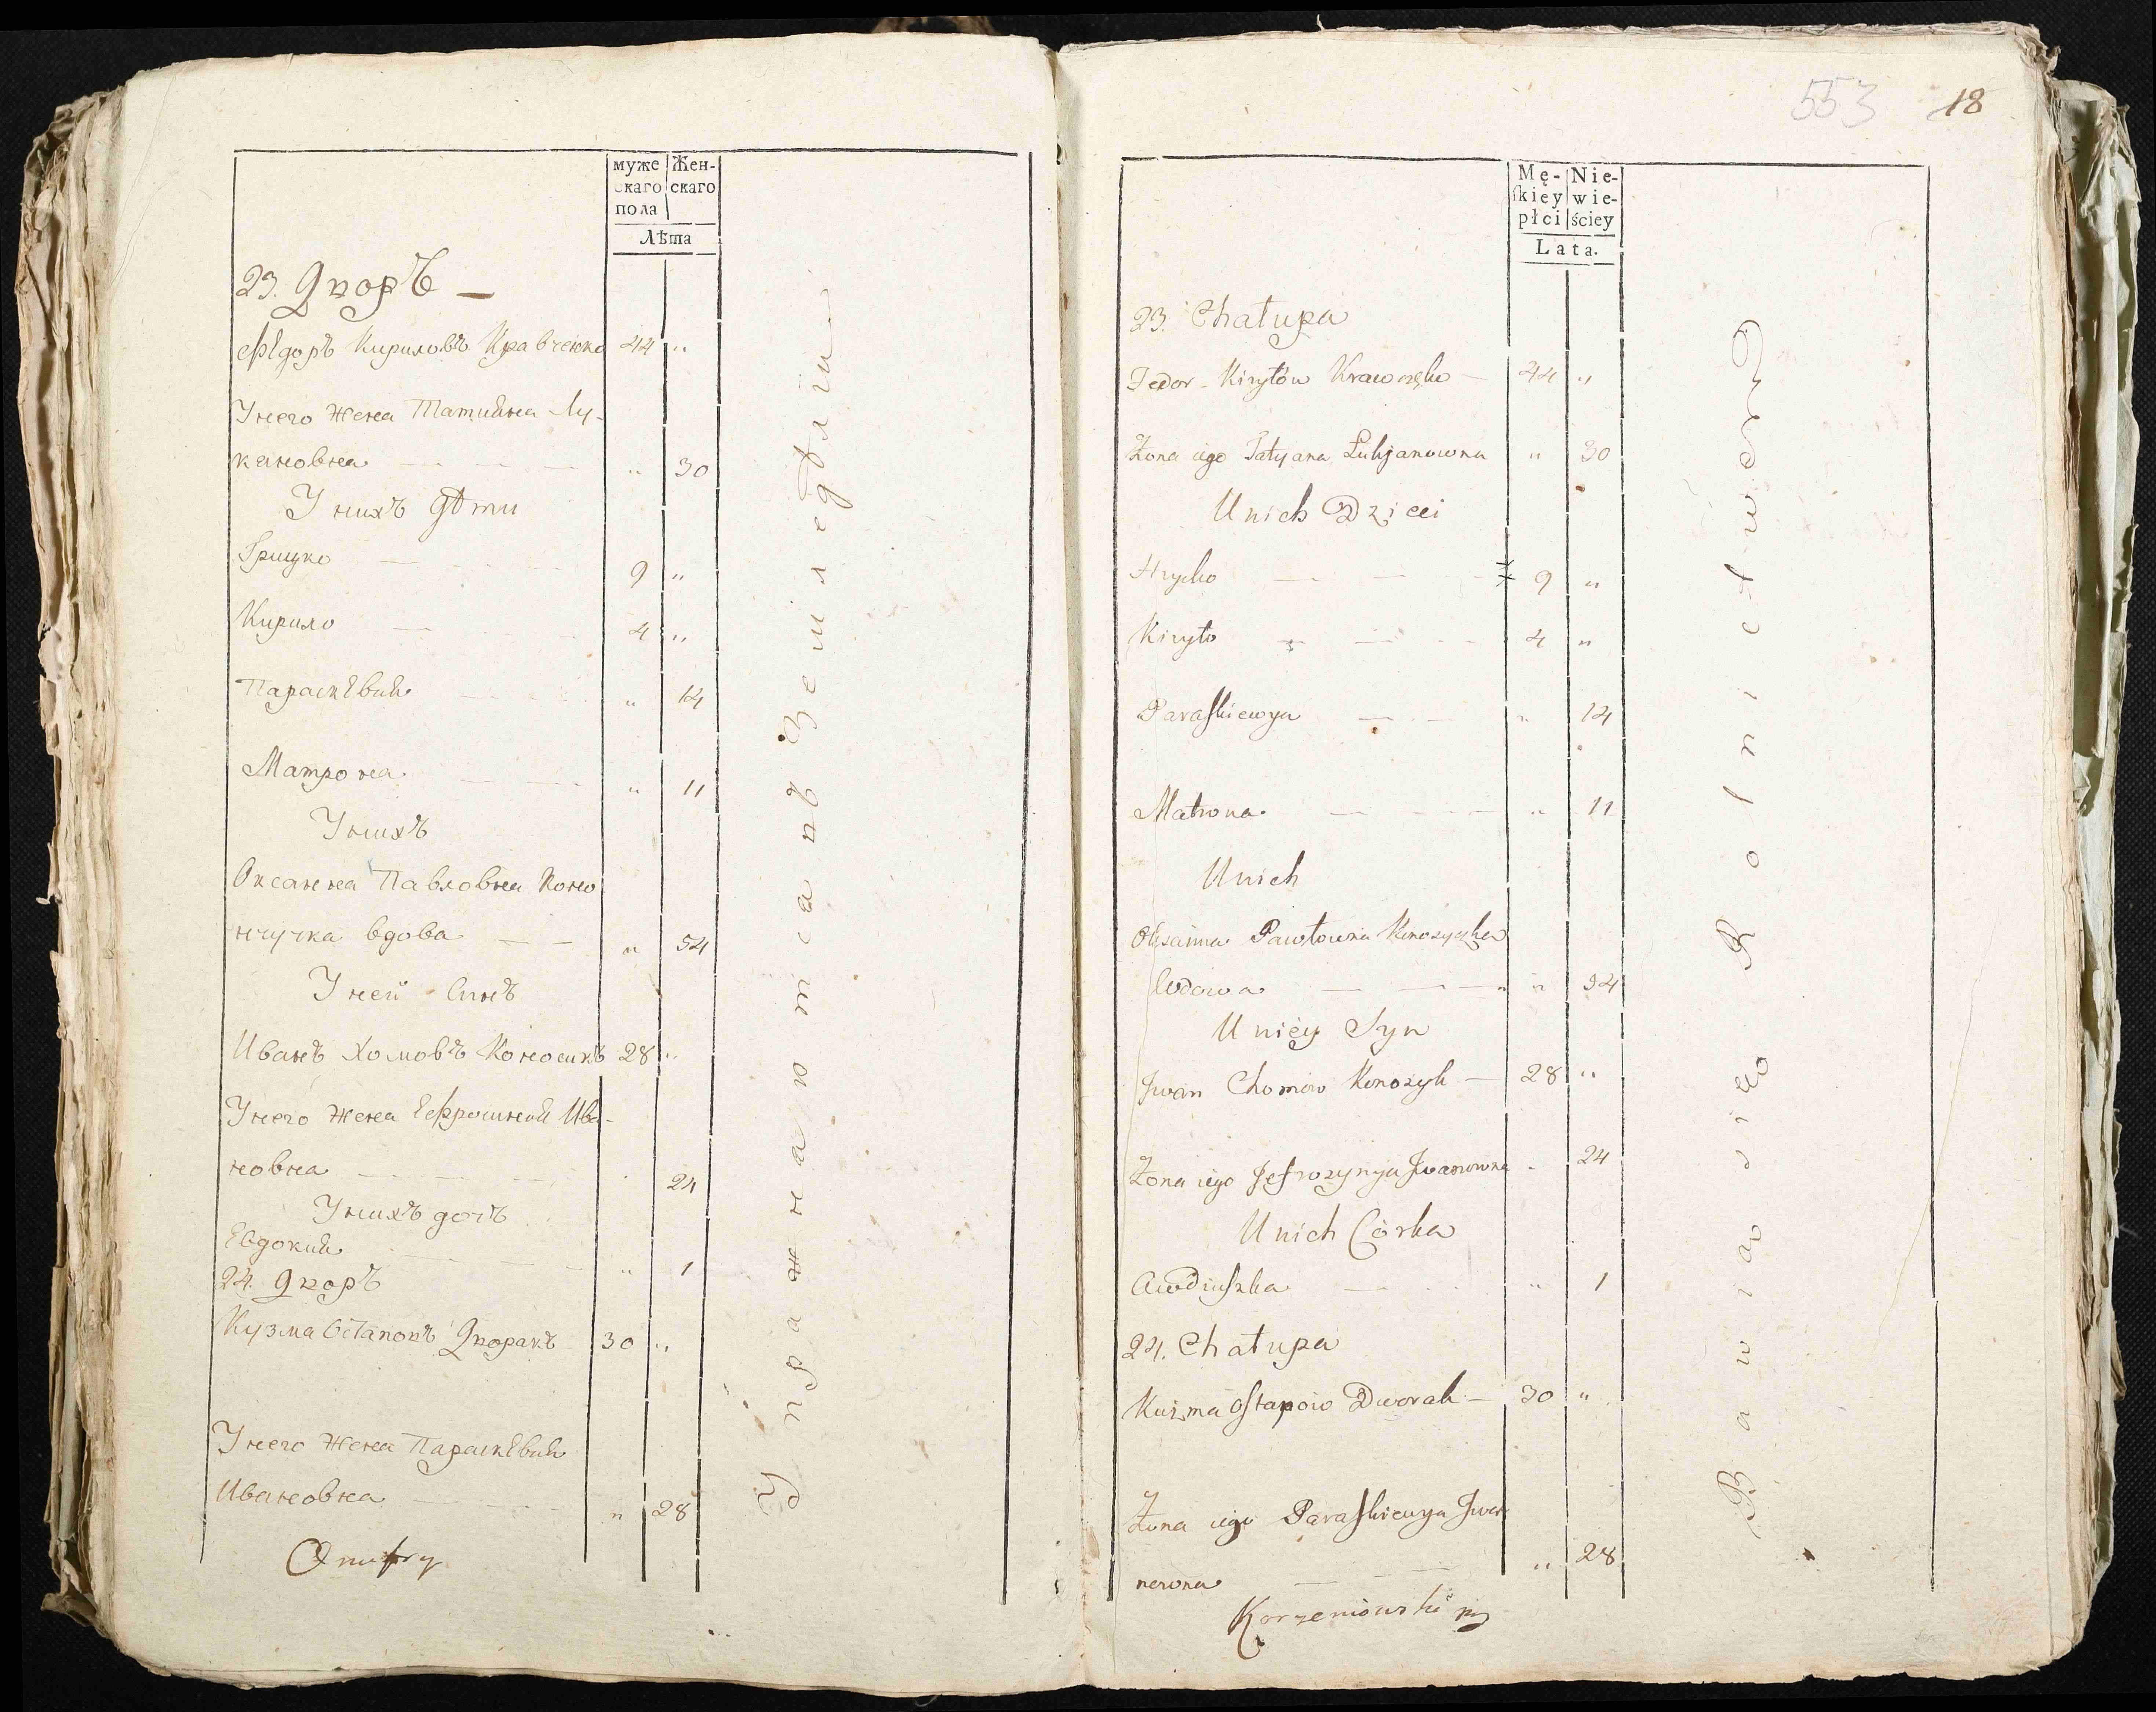 муже
скаго
пола
Жен-
скаго
Лѣта
23. Дворъ —
Ѳедоръ Кириловъ Кравченко 44 "
Унего жена Татияна Лу-
кяновна — — — " 30
Унихъ дѣти
Грицко — — 9 "
Кирило — — 4 "
Параскѣвия — " 14
Матрона — — " 11
Унихъ
Оксанна Павловна Коно
вдова — — " 54
Уней Синъ
Иванъ Хомовъ 28 "
Унего жена Ефросиния Ива-
новна — — — 24
Унихъ дочъ
Евдокия — — " 1
24. Дворъ
Кузма Остаповъ Дворакъ 30 "
Унего жена Параскѣвия
Ивановна — — " 28
Onufry
Упражнаются въ Земледѣлии
553 18
Mę-
ſkiey
płci
Nie-
wie-
ściey
Lata.
23. Chałupa
Fedor Kiryłów Krawczęko — 44 "
Żona iego Tatyana Łukjanowna " 30
Unich Dzieci
Hryćko — — 9 "
Kiryło — — 4 "
Paraſkiewya — " 14
Matrona — — " 11
Unich
Oksanna Pawłowna
Wdowa — — " 54
Unięy Syn
Jwan Chomów Konozyk — 28 "
Żona iego Jefrozynya Jwanowna " 24
Unich Córka
Awdiuſzka — " 1
24. Chałupa
Kuzma Oſtapow Dworak — 30 "
Żona iego Paraſkiewya Jwa-
nowna — — " 28
Korzeniowski
Bawią się Rolnictwem